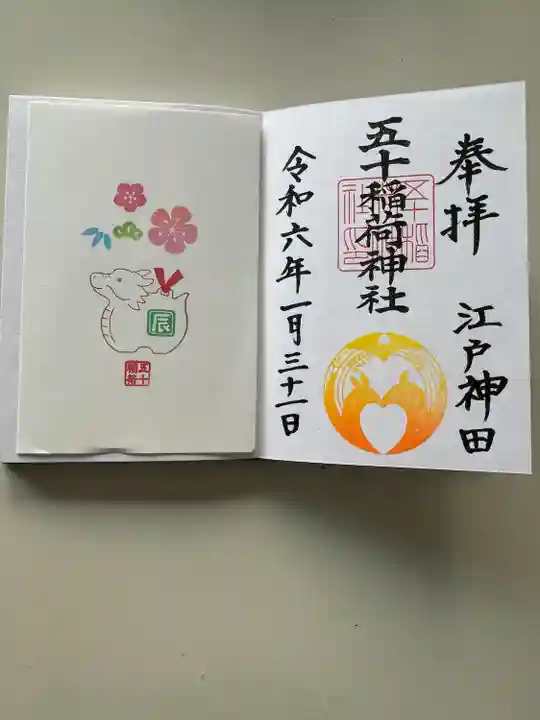 奉拝 江戸神田
五十稲荷神社
令和六年一月三十一日
辰
五十稲荷